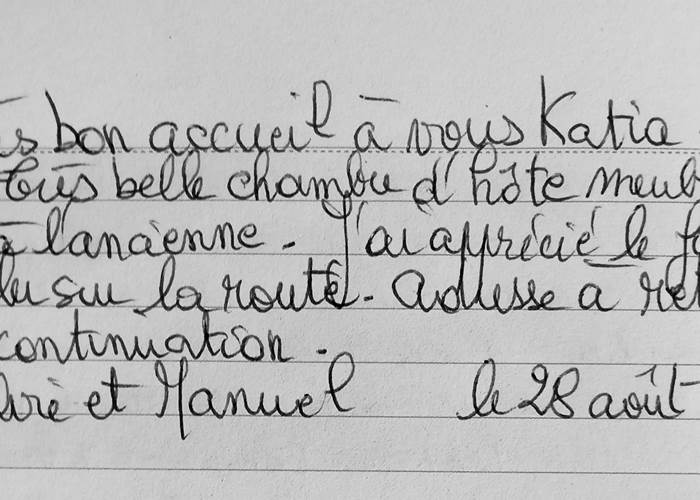 bon accueil à vous Katia
très belle chambre d'hôte
à l'ancienne. J'ai apprécié le
sur la route. Adresse à
continuation.
et Manuel le 28 août